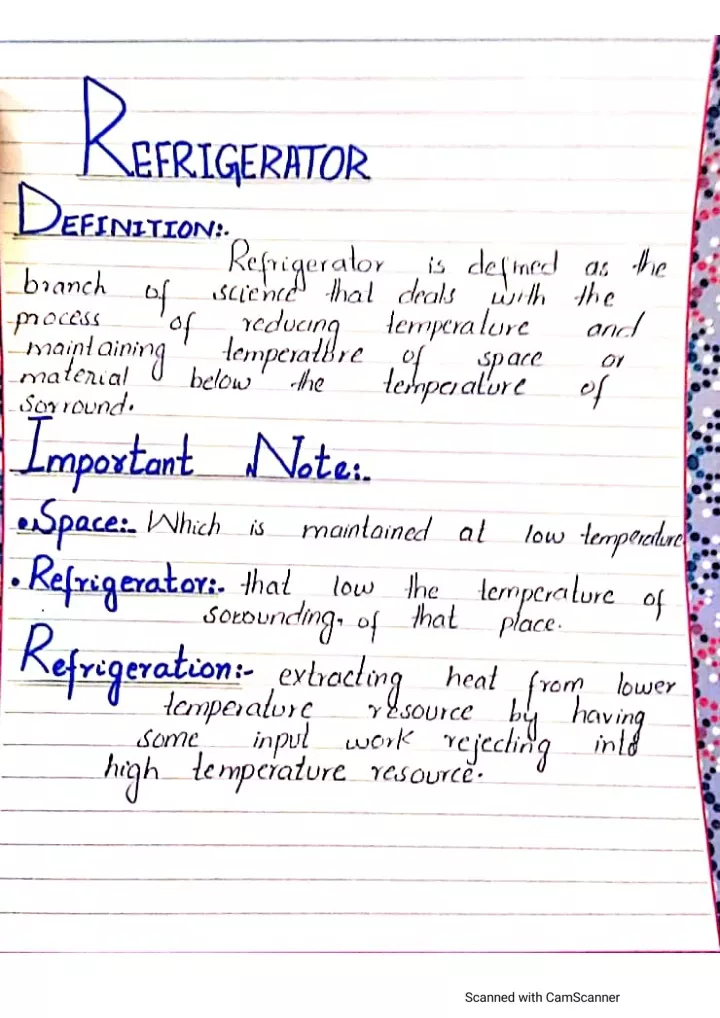 REFRIGERATOR
DEFINITION:-
Refrigerator is defined as the
branch of science that deals with the
process of reducing temperature and
maintaining temperature of space or
material below the temperature of
Sorround.
Important Note:-
• Space:- Which is maintained at low temperature
• Refrigerator:- that low the temperature of
sorounding, of that place.
Refrigeration:- extracting heat from lower
temperature resource by having
some input work rejecting into
high temperature resource.
Scanned with CamScanner